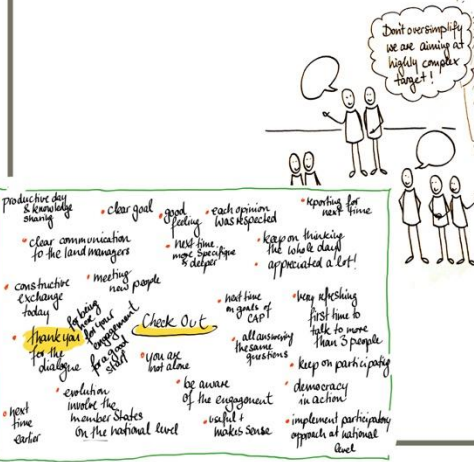 Don't oversimplify
we are aiming at
highly complex
target!
productive day
& knowledge
sharing
• clear goal
• good
feeling
• each opinion
was respected
• reporting for
next time
• clear communication
to the land managers
• next time
more specifique
& deeper
• keep on thinking
the whole day
• appreciated a lot!
• constructive
exchange
today
• meeting
new people
• thank you
for the
dialogue
for being
here
for your
engagement
for a good
start
Check Out
• next time
on goals of
CAP
• very refreshing
first time to
talk to more
than 3 people
• all answering
the same
questions
• you are
not alone
• keep on participating
• evolution
involve the
member States
on the national level
• be aware
of the engagement
• democracy
in action!
• next
time
earlier
• useful +
makes sense
• implement participatory
approach at national
level